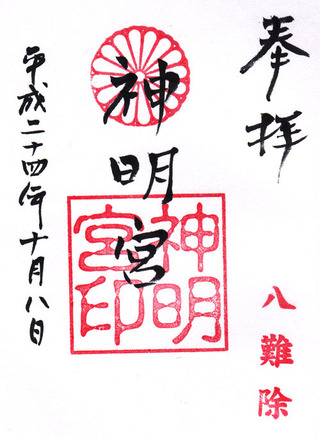 奉拝
八難除
神明宮
神明宮印
平成二十四年十月八日